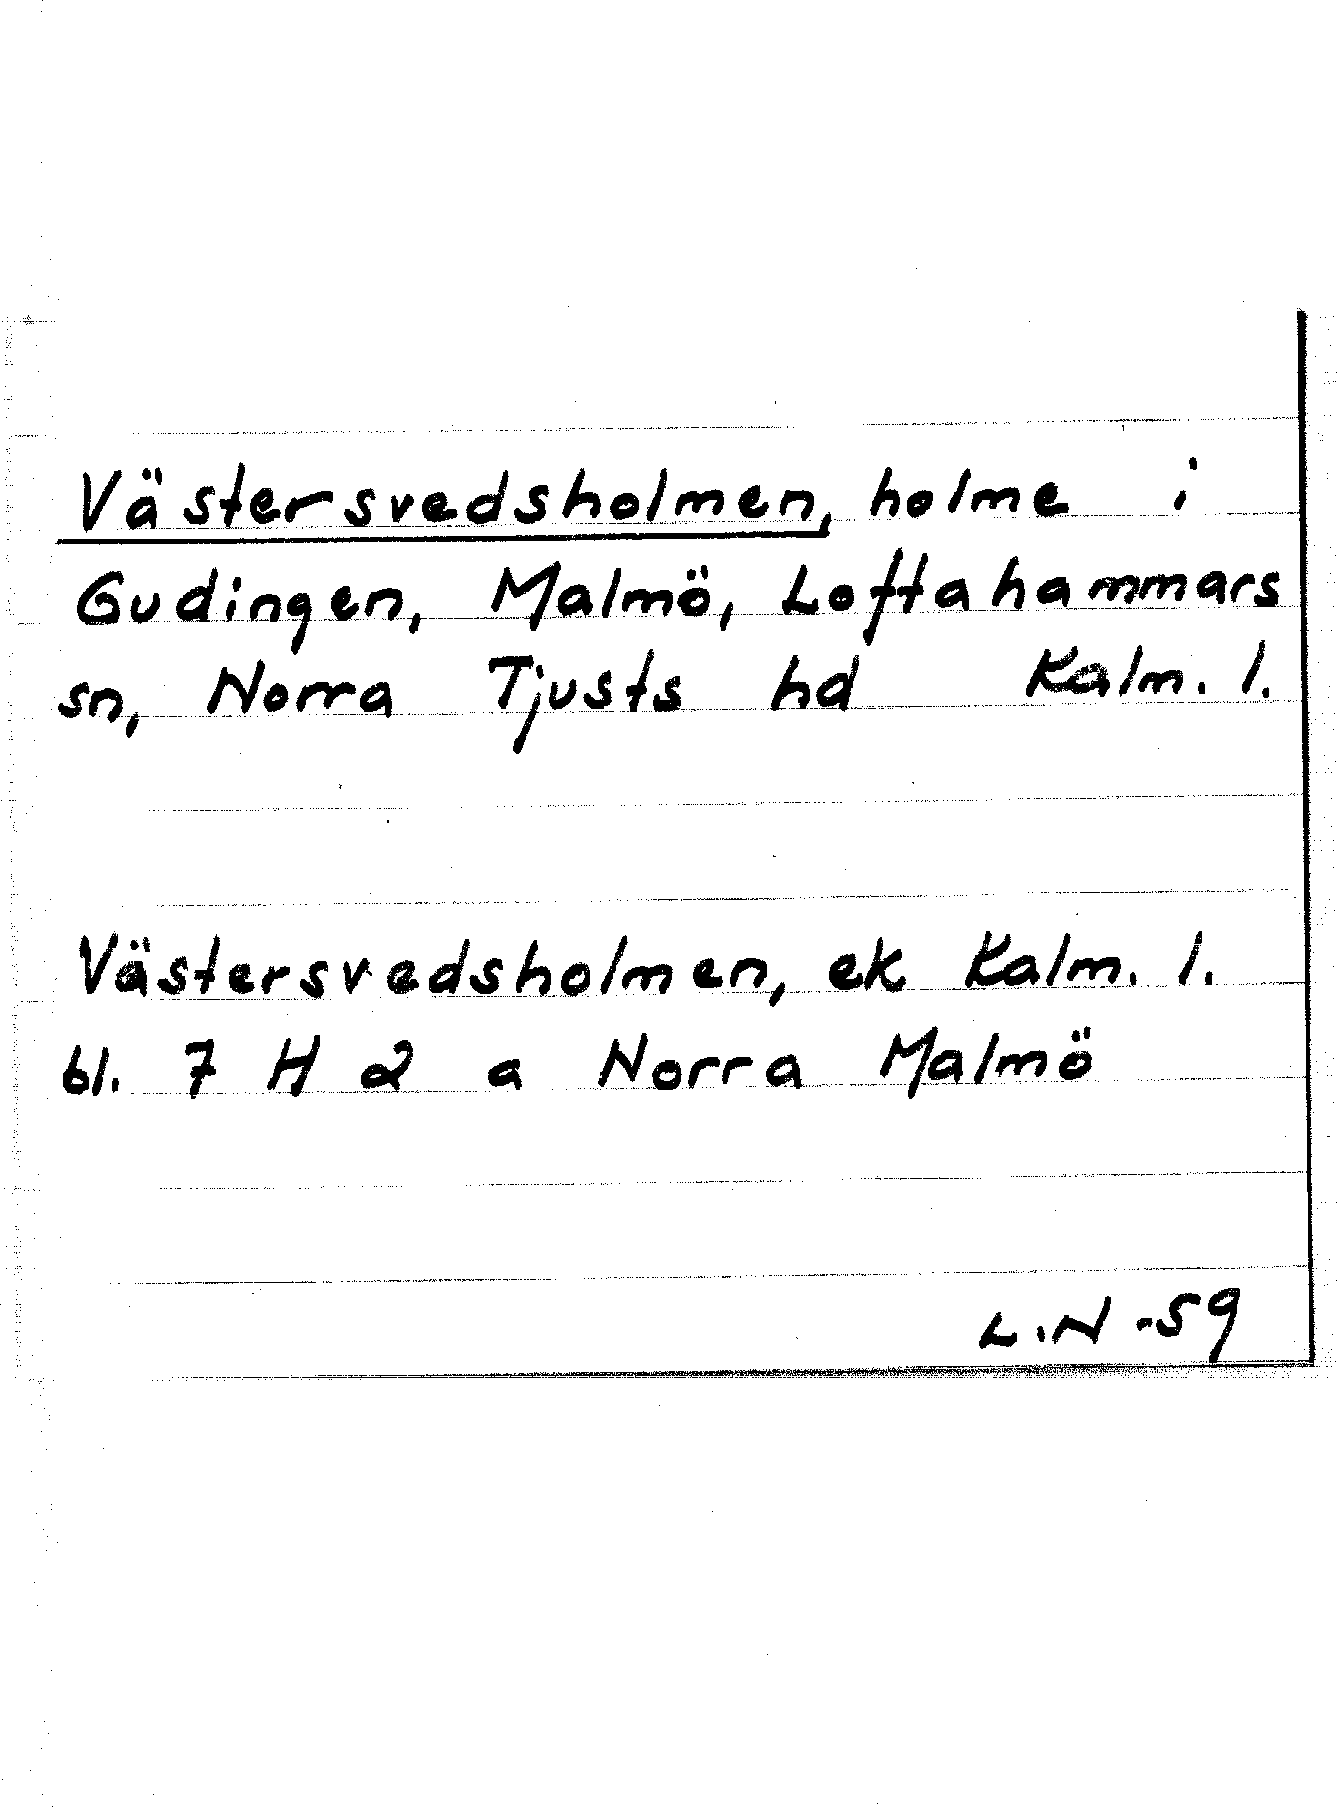 Västersvedsholmen, holme i
Gudingen, Malmö, Loftahammars
sn, Norra Tjusts hd Kalm. l.
Västersvedsholmen, ek Kalm. l.
bl. 7 H 2 a Norra Malmö
L.N -59